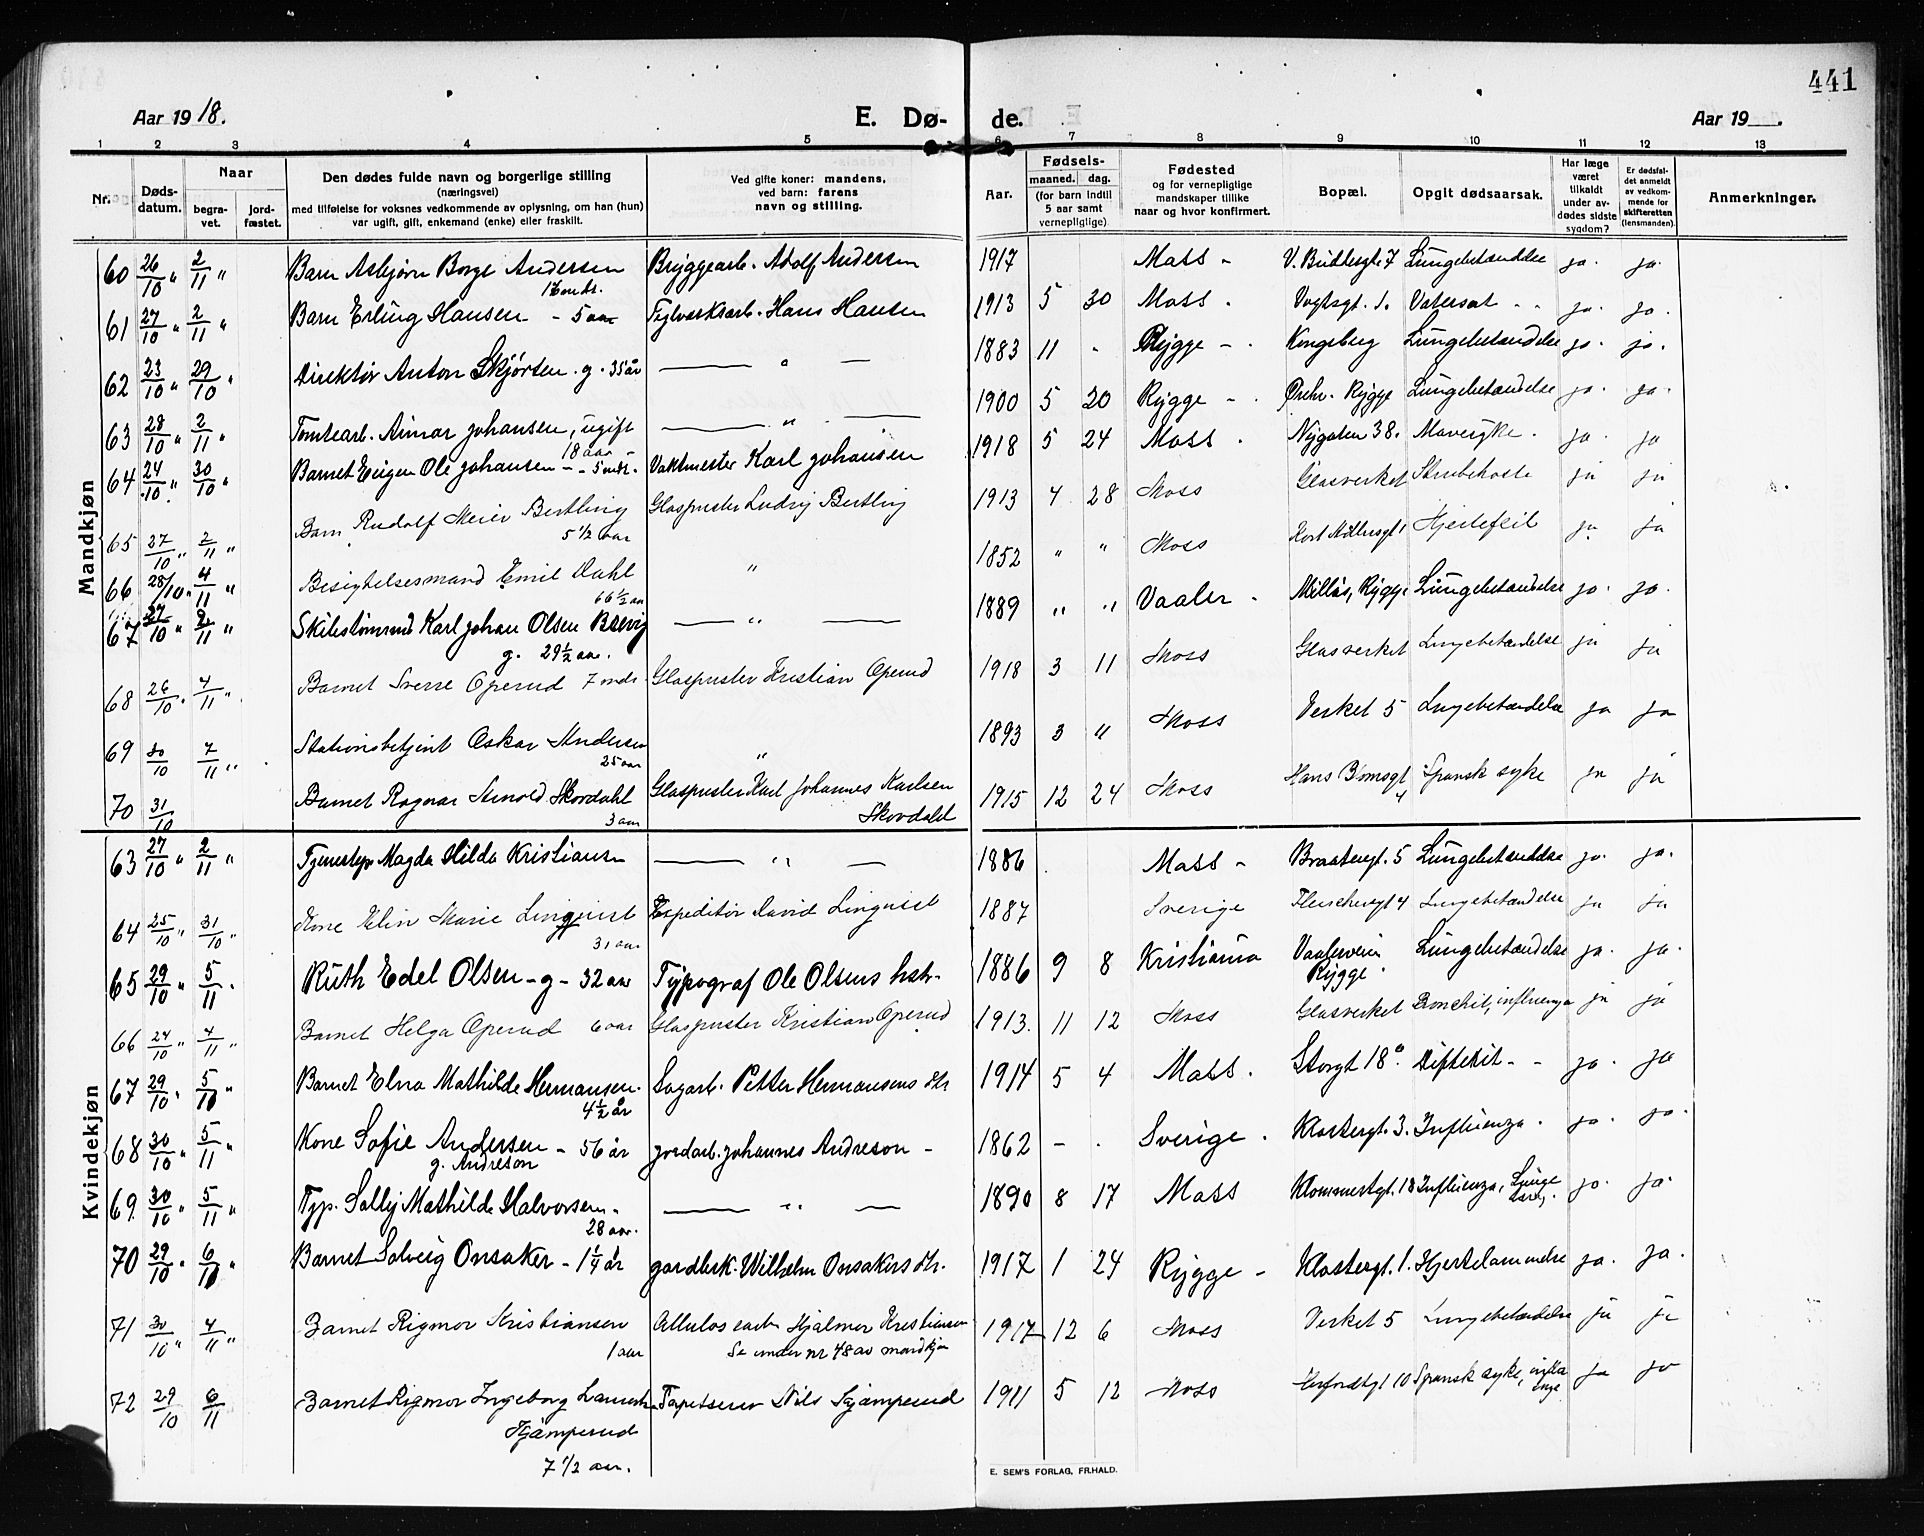 441
Aar 1918.
E. Dø-
de.
Aar 19 .
1 2 3 4 5 6 7 8 9 10 11 12 13
Nr.
Døds-
datum.
Naar
begra-
vet.
jord-
fæstet.
Den dødes fulde navn og borgerlige stilling
(næringsvei)
med tilføielse for voksnes vedkommende av oplysning, om han (hun)
var ugift, gift, enkemand (enke) eller fraskilt.
Ved gifte koner: mandens,
ved barn: farens
navn og stilling.
Aar.
Fødsels-
maaned. dag.
(for barn indtil
5 aar samt
vernepligtige)
Fødested
og for vernepligtige
mandskaper tillike
naar og hvor konfirmert.
Bopæl.
Opgit dødsaarsak.
Har læge
været
tilkaldt
under av-
dødes sidste
sygdom?
Er dødsfal-
det anmeldt
av vedkom-
mende for
skifteretten
(lensmanden).
Anmerkninger.
Mandkjøn
60 26/10 " 2/11 " Barn Asbjørn Borge Andersen Bryggearb. Adolf Andersen 1917 Moss - V. Budtsgt. 7 Lungebetændelse ja. ja.
61 27/10 " 2/11 " Barn Erling Hansen - 5 aar Teglverksarb. Hans Hansen 1913 5 30 Moss . Vogtsgt. 1. Vatersot - - ja. ja.
62 23/10 " 29/10 " Direktør Anton Skjørten . g. 35 år — " — 1883 11 . Rygge - . Kongsberg Lungebetændelse ja. ja.
63 28/10 " 2/11 " Tomtearb. Aimar Johansen, ugift — " — 1900 5 20 Rygge - . Rygge Lungebetændelse ja. ja.
18 aar -
64 24/10 " 30/10 " Barnet Eugen Ole Johansen - - 5 mdr. Vaktmester Karl Johansen 1918 5 24 Moss . Nygaten 38. Mavesyke. ja. ja
65 27/10 " 2/11 " Barn Rudolf Meier Bertling Glaspuster Ludvig Bertling 1913 4 28 Moss Glasverket Strubehoste ja ja
5 1/2 aar
66 28/10 " 4/11 " Besigtelsesmand Emil Dahl " 1852 " " Moss Hjertefeil ja ja
66 1/2 aar
67 27/10 " 2/11 " Karl Johan Olsen Brevig — " — 1889 " " Vaaler - Rygge Lungebetændelse ja. ja.
g. 29 1/2 aar.
68 26/10 " 4/11 " Barnet Sverre Operud 7 mdr. Glaspuster Kristian Operud 1918 3 11 Moss Glasverket Lungebetændelse ja ja
69 30/10 7/11 " Stationsbetjent Oskar Andersen " 1893 3 " Moss Verket 5 Lungebetændelse ja ja
25 aar
70 31/10 Barnet Ragnar Arnold Skovdahl Glaspuster Karl Johannes Karlsen 1915 12 24 Moss Hans Blomsgt Spansk syke ja ja
3 aar Skovdahl 4
Kvindekjøn
63 27/10 " 2/11 " Tjenestep. Magda Hilda Kristiansen — " — 1886 . Moss - Braatengt. 5 Lungebetændelse ja. ja.
64 25/10 " 31/10 " Kone Elin Marie Linquist Expeditør David Linquist 1887 Sverige Fleischersgt 4 Lungebetændelse ja ja
31 aar
65 29/10 " 5/11 . Ruth Edel Olsen - g - 32 aar Typograf Ole Olsens hstr. 1886 9 8 Kristiania Vaalerveien Lungebetændelse ja. ja.
Rygge.
66 24/10 " 4/11 " Barnet Helga Operud 6 aar Glaspuster Kristian Operud 1913. 11 12 Moss Glasverket Bronchit, influenza ja ja
67 29/10 . 5/11 " Barnet Elna Mathilde Hermansen. Sagarb. Petter Hermansens dtr 1914 5 4 Moss . Storgt 18 Difterit - - ja. ja
4 1/2 år
68 30/10 " 5/11 " Kone Sofie Andersen - 56 år Jordarb. Johannes Andreson - 1862 - . Sverige . Klostergt. 3. Influenza . ja. ja.
g. Andreson
69 30/10 " 5/11 " Typ. Solly Mathilde Halvorsen. — " — 1890 8 17 Moss Influenza, Lunge ja. ja.
28 aar.
70 29/10 " 6/11 " Barnet Solveig Onsaker - 1 1/4 år gardbrk. Wilhelm Onsakers dtr. 1917 1 24 Rygge - Klostergt. 1. Hjertelammelse ja. ja.
71 30/10 " 4/11 " Barnet Rigmor Kristiansen Cellulosearb Hjalmar Kristiansen 1917 12 6 Moss Verket 5 Lungebetændelse ja ja
1 aar Se under nr 48 av mandkjøn
72 29/10 6/11 Barnet Rigmor Ingeborg Tapetserer Nils Kjamperud 1911 5 12 Moss Spansk syke, ja ja
Kjamperud
7 1/2 aar.
E. SEM'S FORLAG, FR.HALD.